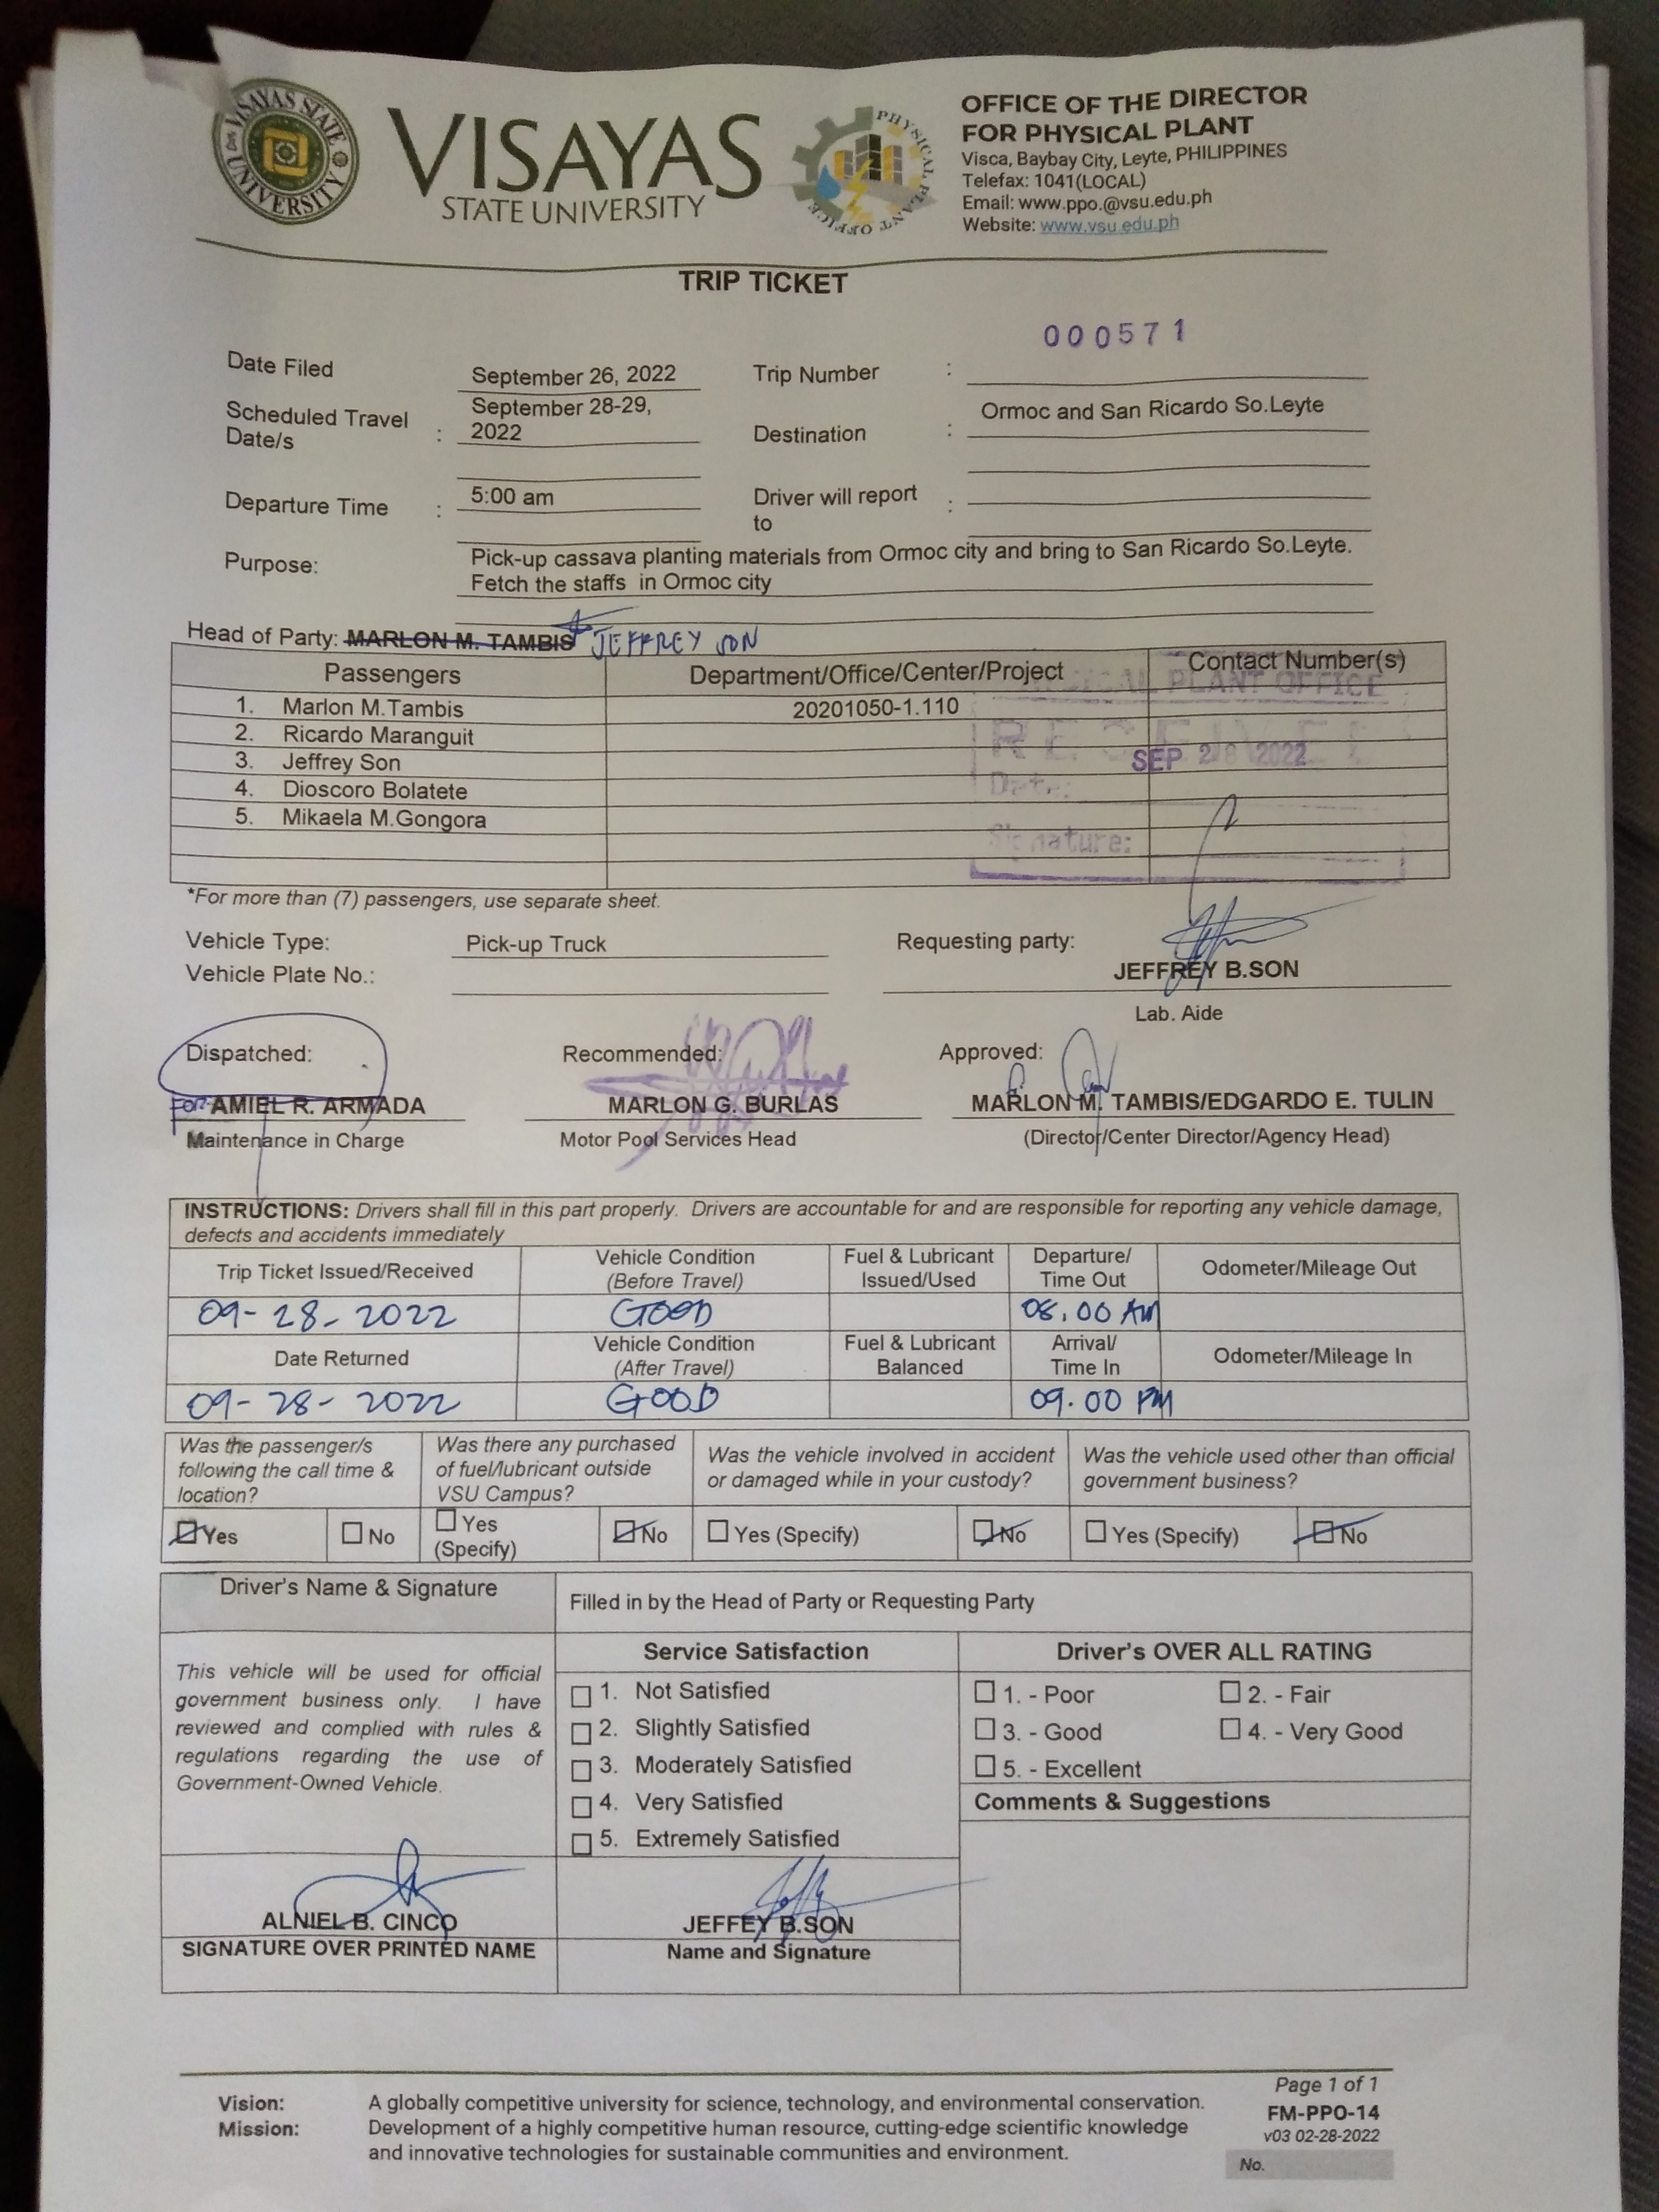 VISAYAS STATE UNIVERSITY
VISAYAS
STATE UNIVERSITY
PHYSICAL PLANT OFFICE
OFFICE OF THE DIRECTOR
FOR PHYSICAL PLANT
Visca, Baybay City, Leyte, PHILIPPINES
Telefax: 1041(LOCAL)
Email: www.ppo.@vsu.edu.ph
Website: www.vsu.edu.ph
TRIP TICKET
000571
Date Filed September 26, 2022 Trip Number :
Scheduled Travel Date/s : September 28-29, 2022 Destination : Ormoc and San Ricardo So.Leyte
Departure Time : 5:00 am Driver will report to :
Purpose: Pick-up cassava planting materials from Ormoc city and bring to San Ricardo So.Leyte.
Fetch the staffs in Ormoc city
Head of Party: MARLON M. TAMBIS JEFFREY SON
Passengers Department/Office/Center/Project Contact Number(s)
1. Marlon M.Tambis 20201050-1.110
2. Ricardo Maranguit
3. Jeffrey Son
4. Dioscoro Bolatete
5. Mikaela M.Gongora
PLANT OFFICE
SEP 28 2022
Date:
Signature:
*For more than (7) passengers, use separate sheet.
Vehicle Type: Pick-up Truck Requesting party:
Vehicle Plate No.: JEFFREY B.SON
Lab. Aide
Dispatched: Recommended: Approved:
For: AMIEL R. ARMADA MARLON G. BURLAS MARLON M. TAMBIS/EDGARDO E. TULIN
Maintenance in Charge Motor Pool Services Head (Director/Center Director/Agency Head)
INSTRUCTIONS: Drivers shall fill in this part properly. Drivers are accountable for and are responsible for reporting any vehicle damage,
defects and accidents immediately
Trip Ticket Issued/Received Vehicle Condition (Before Travel) Fuel & Lubricant Issued/Used Departure/ Time Out Odometer/Mileage Out
09-28-2022 GOOD 08.00 AM
Date Returned Vehicle Condition (After Travel) Fuel & Lubricant Balanced Arrival/ Time In Odometer/Mileage In
09-28-2022 GOOD 09.00 PM
Was the passenger/s following the call time & location? Was there any purchased of fuel/lubricant outside VSU Campus? Was the vehicle involved in accident or damaged while in your custody? Was the vehicle used other than official government business?
Yes No Yes (Specify) No Yes (Specify) No Yes (Specify) No
Driver's Name & Signature
Filled in by the Head of Party or Requesting Party
This vehicle will be used for official
government business only. I have
reviewed and complied with rules &
regulations regarding the use of
Government-Owned Vehicle.
Service Satisfaction
1. Not Satisfied
2. Slightly Satisfied
3. Moderately Satisfied
4. Very Satisfied
5. Extremely Satisfied
Driver's OVER ALL RATING
1. - Poor 2. - Fair
3. - Good 4. - Very Good
5. - Excellent
Comments & Suggestions
ALNIEL B. CINCO
SIGNATURE OVER PRINTED NAME
JEFFEY B.SON
Name and Signature
Vision: A globally competitive university for science, technology, and environmental conservation.
Mission: Development of a highly competitive human resource, cutting-edge scientific knowledge
and innovative technologies for sustainable communities and environment.
Page 1 of 1
FM-PPO-14
v03 02-28-2022
No.